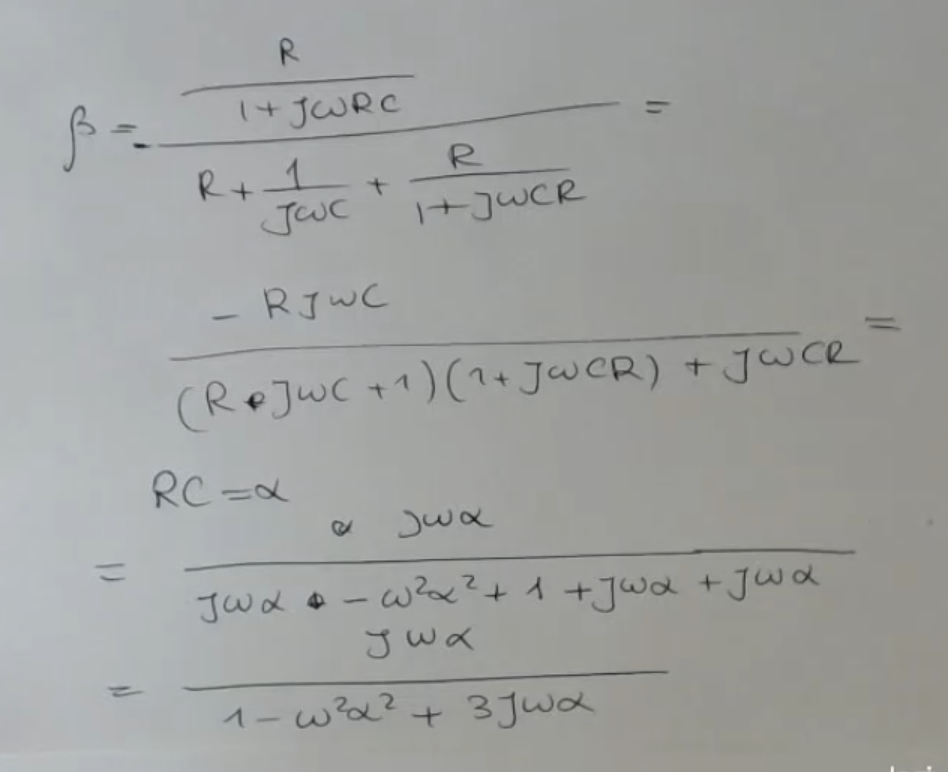 β = - (R / (1 + jωRC)) / (R + 1/(jωC) + R/(1 + jωCR)) =
- RjωC / ((R•jωC + 1)(1 + jωCR) + jωCR) =
RC = α
= jωα / (jωα - ω²α² + 1 + jωα + jωα)
= jωα / (1 - ω²α² + 3jωα)